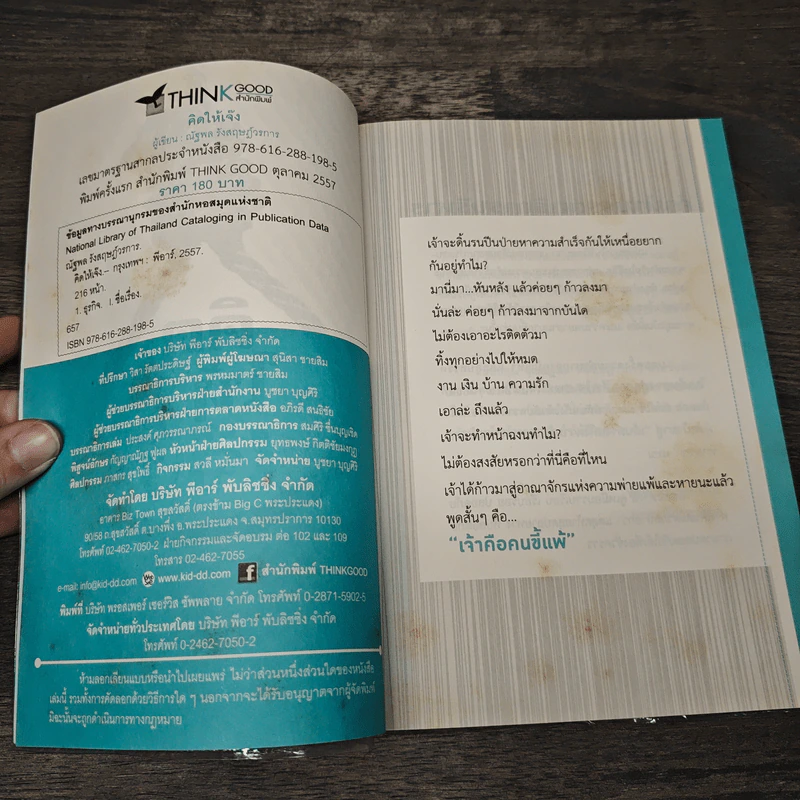 THINK GOOD
สำนักพิมพ์
คิดให้เจ๊ง
ผู้เขียน : ณัฐพล รังสฤษฎ์วรการ
เลขมาตรฐานสากลประจำหนังสือ 978-616-288-198-5
พิมพ์ครั้งแรก สำนักพิมพ์ THINK GOOD ตุลาคม 2557
ราคา 180 บาท
ข้อมูลทางบรรณานุกรมของสำนักหอสมุดแห่งชาติ
National Library of Thailand Cataloging in Publication Data
ณัฐพล รังสฤษฎ์วรการ.
คิดให้เจ๊ง.-- กรุงเทพฯ : พีอาร์, 2557.
216 หน้า.
1. ธุรกิจ. I. ชื่อเรื่อง.
657
ISBN 978-616-288-198-5
เจ้าของ บริษัท พีอาร์ พับลิชชิ่ง จำกัด
ที่ปรึกษา วิสา รัตตประดิษฐ์ ผู้พิมพ์ผู้โฆษณา สุนิสา ชายสิม
บรรณาธิการบริหาร พรหมมาตร์ ชายสิม
ผู้ช่วยบรรณาธิการบริหารฝ่ายสำนักงาน บูชยา บุญศิริ
ผู้ช่วยบรรณาธิการบริหารฝ่ายการตลาดหนังสือ อภิรดี สนธิชัย
บรรณาธิการเล่ม ประสงค์ ศุภวรรณาภรณ์ กองบรรณาธิการ สมศิริ ชื่นบุญเชิด
พิสูจน์อักษร กัญญาณัฏฐ ฟูผล หัวหน้าฝ่ายศิลปกรรม ยุทธพงษ์ กิตติชัยมงกุฎ
ศิลปกรรม ภาสกร สุขโพธิ์ กิจกรรม สวลี หมั่นมา จัดจำหน่าย บูชยา บุญศิริ
จัดทำโดย บริษัท พีอาร์ พับลิชชิ่ง จำกัด
อาคาร Biz Town สุขสวัสดิ์ (ตรงข้าม Big C พระประแดง)
90/58 ถ.สุขสวัสดิ์ ต.บางพึ่ง อ.พระประแดง จ.สมุทรปราการ 10130
โทรศัพท์ 02-462-7050-2 ฝ่ายกิจกรรมและจัดอบรม ต่อ 102 และ 109
โทรสาร 02-462-7055
e-mail: info@kid-dd.com www.kid-dd.com f สำนักพิมพ์ THINKGOOD
พิมพ์ที่ บริษัท พรอสเพอร์ เซอร์วิส ซัพพลาย จำกัด โทรศัพท์ 0-2871-5902-5
จัดจำหน่ายทั่วประเทศโดย บริษัท พีอาร์ พับลิชชิ่ง จำกัด
โทรศัพท์ 0-2462-7050-2
ห้ามลอกเลียนแบบหรือนำไปเผยแพร่ ไม่ว่าส่วนหนึ่งส่วนใดของหนังสือ
เล่มนี้ รวมทั้งการคัดลอกด้วยวิธีการใด ๆ นอกจากจะได้รับอนุญาตจากผู้จัดพิมพ์
มิฉะนั้นจะถูกดำเนินการทางกฎหมาย
เจ้าจะดิ้นรนปีนป่ายหาความสำเร็จกันให้เหนื่อยยาก
กันอยู่ทำไม?
มานี่มา...หันหลัง แล้วค่อยๆ ก้าวลงมา
นั่นล่ะ ค่อยๆ ก้าวลงมาจากบันได
ไม่ต้องเอาอะไรติดตัวมา
ทิ้งทุกอย่างไปให้หมด
งาน เงิน บ้าน ความรัก
เอาล่ะ ถึงแล้ว
เจ้าจะทำหน้าฉงนทำไม?
ไม่ต้องสงสัยหรอกว่าที่นี่คือที่ไหน
เจ้าได้ก้าวมาสู่อาณาจักรแห่งความพ่ายแพ้และหายนะแล้ว
พูดสั้นๆ คือ...
“เจ้าคือคนขี้แพ้”